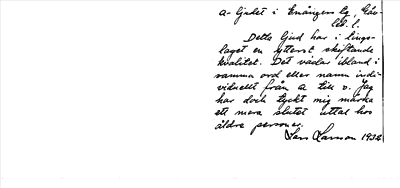 a-ljudet i Enångers sn, Gäv-
leb. l.
Detta ljud har i lings-
laget en ytterst skiftande
kvalitet. Det växlar ibland i
samma ord eller namn indi-
viduellt från a till o. Jag
har dock tyckt mig märka
ett mera slutet uttal hos
äldre personer.
Lars Larsson 1932